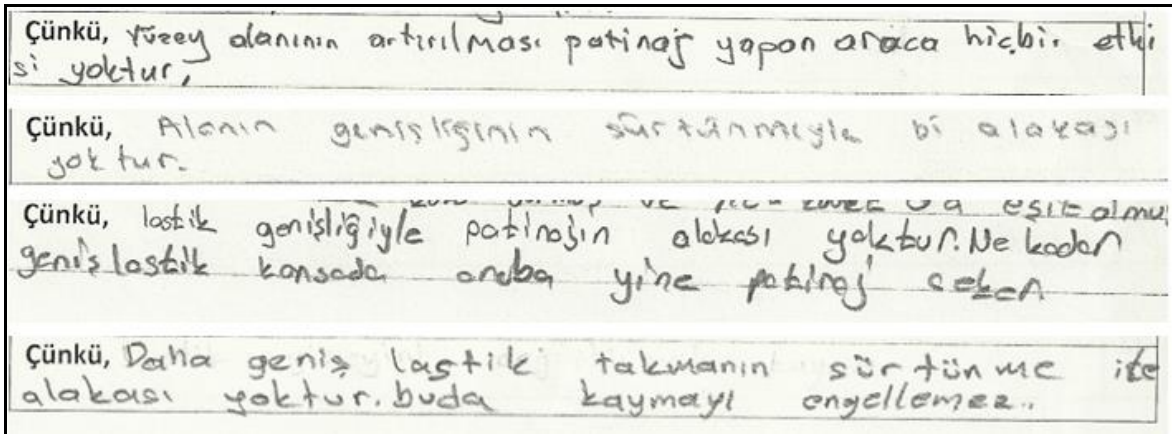 Çünkü, Yüzey alanının artırılması patinaj yapan araca hiçbir etki
si yoktur,
Çünkü, Alanın genişliğinin sürtünmeyle bi alakası
yoktur.
eşit olmu
Çünkü, lastik genişliğiyle patinajın alakası yoktur. Ne kadar
geniş lastik konsada araba yine patinaj çeker
Çünkü, Daha geniş lastik takmanın sürtünme ile
alakası yoktur. buda kaymayı engellemez..